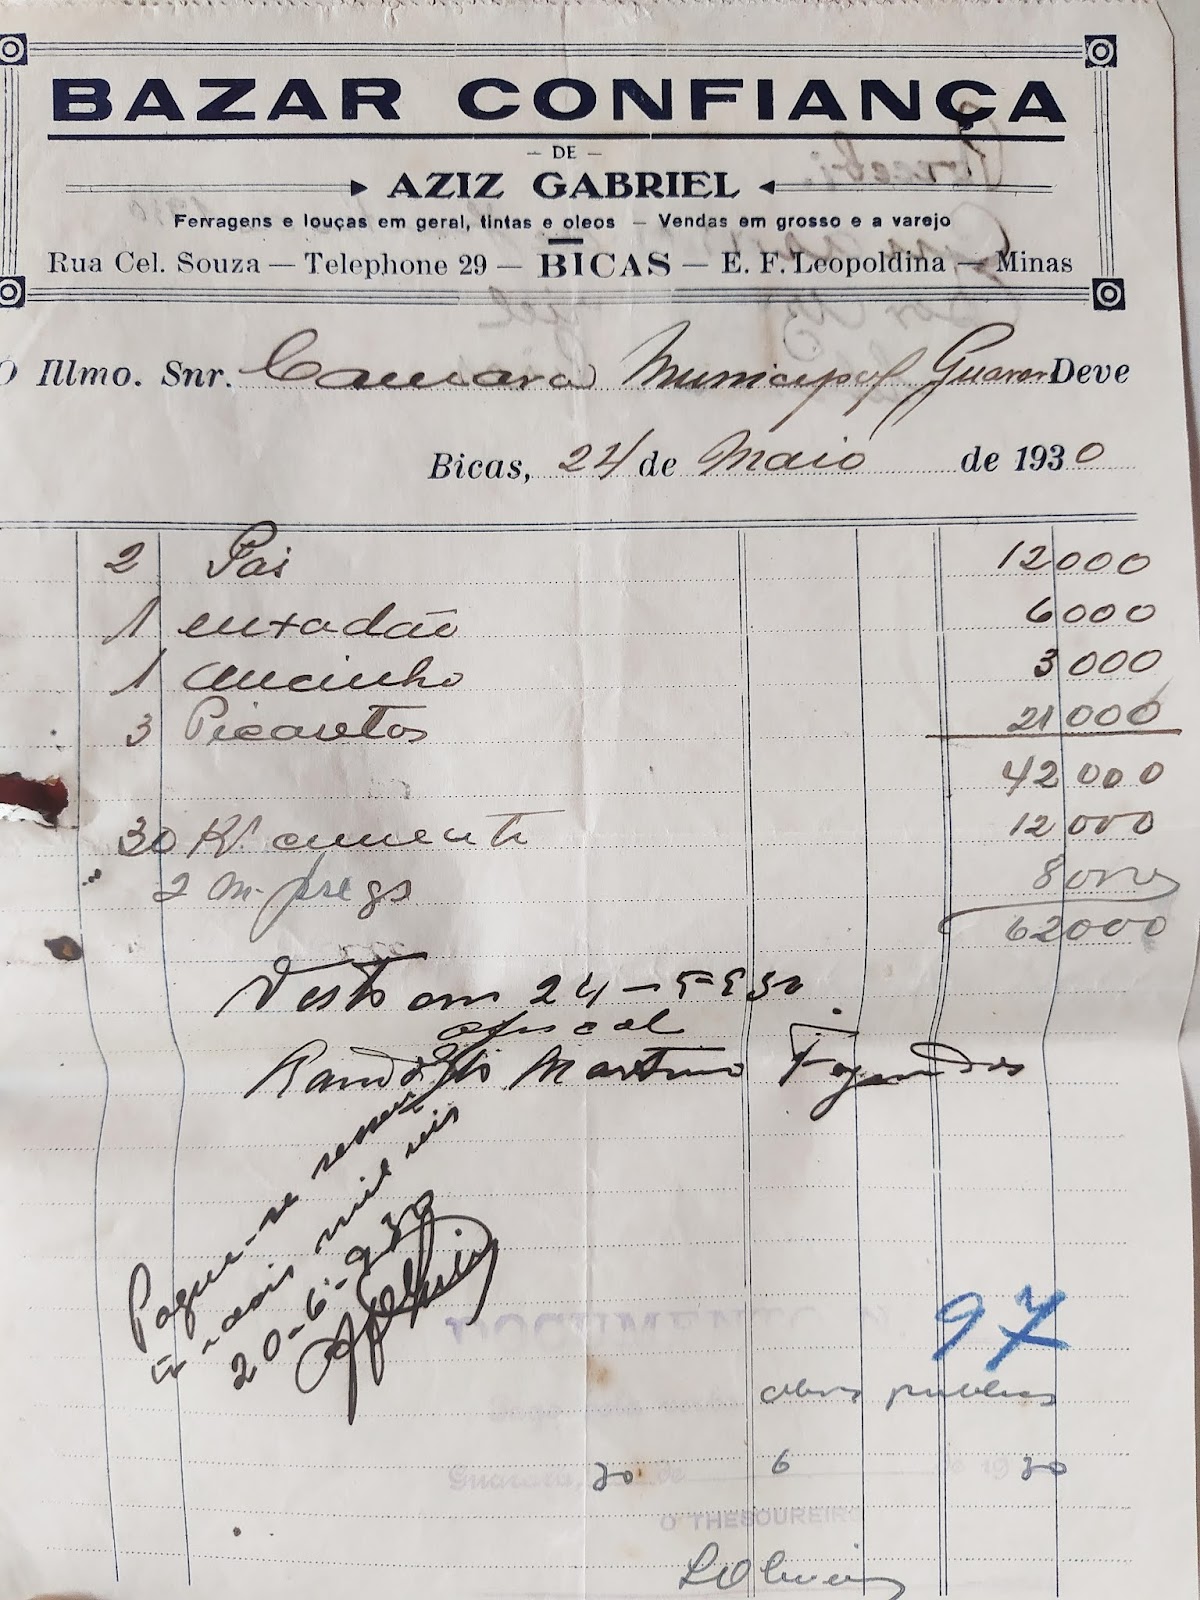 BAZAR CONFIANÇA
— DE —
AZIZ GABRIEL
Ferragens e louças em geral, tintas e oleos — Vendas em grosso e a varejo
Rua Cel. Souza — Telephone 29 — BICAS — E. F. Leopoldina — Minas
O Illmo. Snr. Camara Municipal Guarar Deve
Bicas, 24 de Maio de 1930
2 Pás 12000
1 enxadão 6000
1 Ancinho 3000
3 Picaretas 21000
42000
30 K. cimento 12000
2 m. pregs 8000
62000
Visto em 24-5-930
o fiscal
Randolfo Martins Fagundes
Pague-se sessenta
e dois mil reis
20-6-930
97
obras publicas
Guarara, 20 de 6 de 1930
O THESOUREIRO